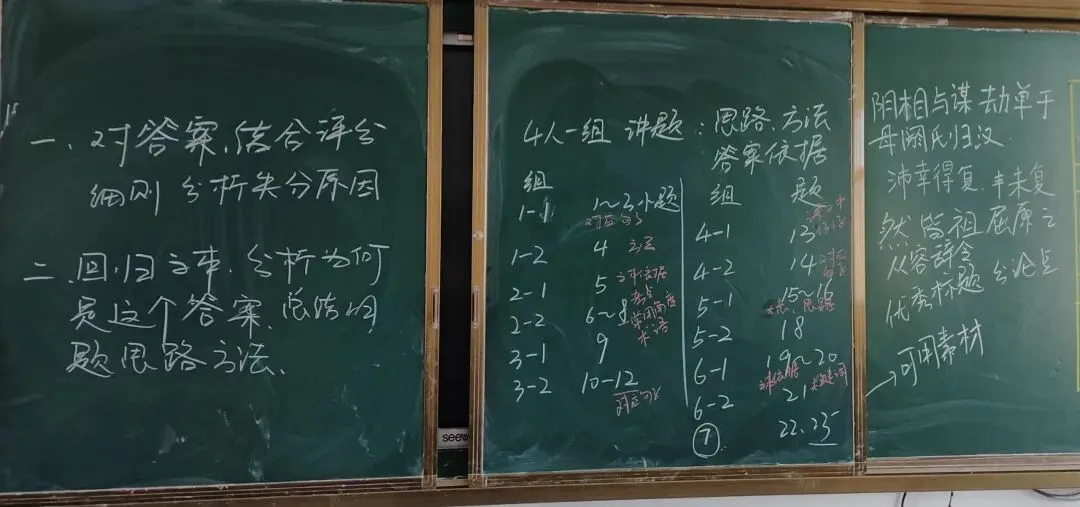 一、对答案,结合评分
细则 分析失分原因
二.回归文本,分析为何
是这个答案,总结切
题思路方法.
seewo
4人一组 讲题:思路、方法
答案依据
组
1-1 1~3小题
对应句子
1-2 4
2-1 5 文本依据
2-2 6~8
术语
3-1 9
3-2 10-12
对应句子
组 题
4-1 13
4-2 14
5-1 15~16
思路
5-2 18
6-1 19~20
6-2 21 关键词
⑦ 22.23
阴相与谋劫单于
母阏氏归汉
沛幸得复,丰未复
然皆祖屈原之
从容辞令
优秀标题 分论点
→可用素材